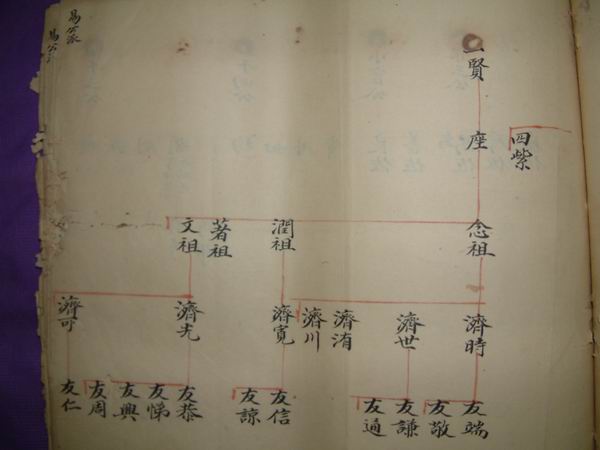 四紫
一賢
座
念祖
潤祖
著祖
文祖
濟時
濟世
濟洧
濟川
濟寬
濟光
濟可
友端
友敬
友謙
友通
友信
友諒
友恭
友悌
友興
友周
友仁